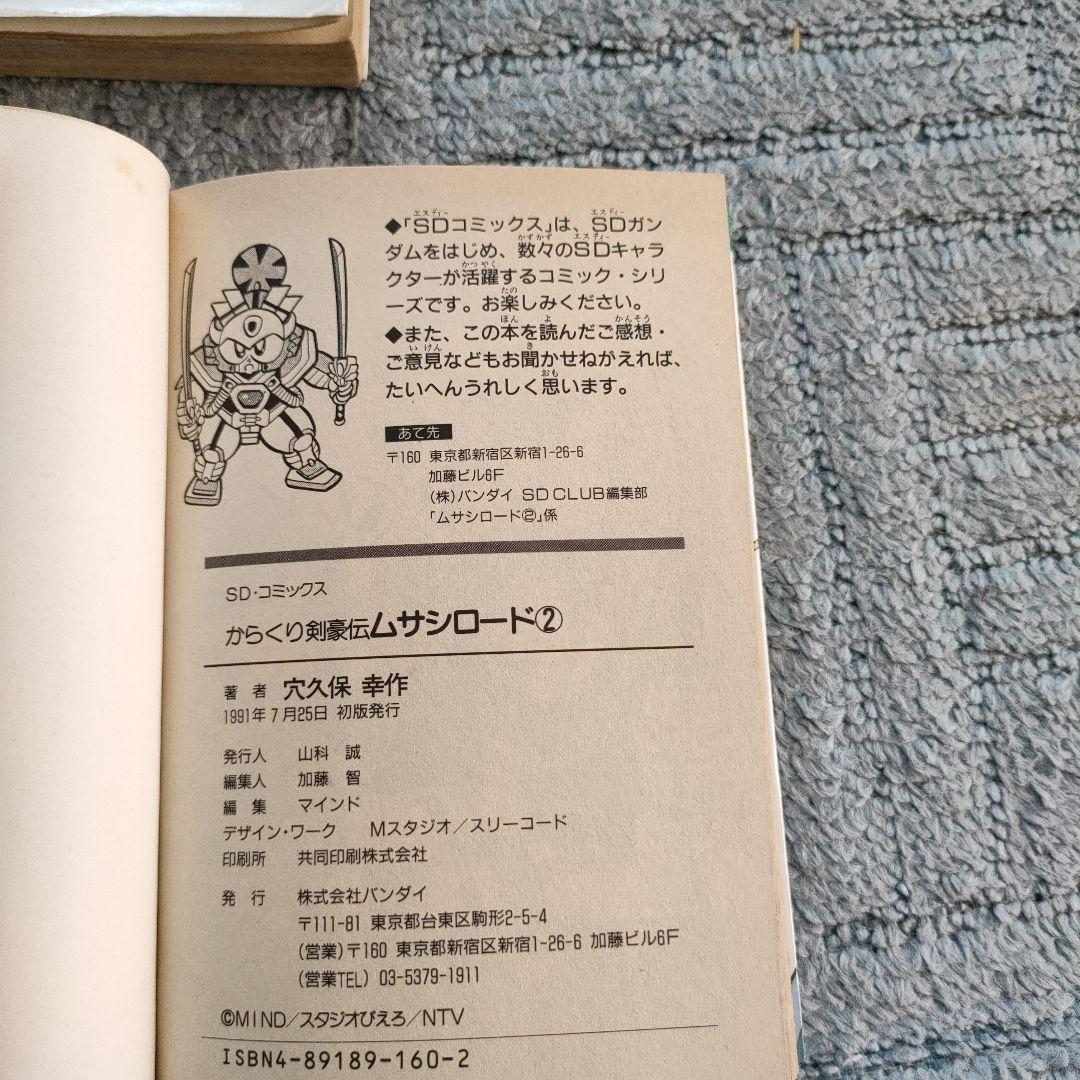 ◆「SDコミックス」は、SDガン
ダムをはじめ、数々のSDキャラ
クターが活躍するコミック・シリ
ーズです。お楽しみください。
◆また、この本を読んだご感想・
ご意見などもお聞かせねがえれば、
たいへんうれしく思います。
あて先
〒160 東京都新宿区新宿1-26-6
加藤ビル6F
(株)バンダイ SD CLUB編集部
「ムサシロード②」係
SD・コミックス
からくり剣豪伝ムサシロード②
著者 穴久保 幸作
1991年7月25日 初版発行
発行人 山科 誠
編集人 加藤 智
編集 マインド
デザイン・ワーク Mスタジオ/スリーコード
印刷所 共同印刷株式会社
発行 株式会社バンダイ
〒111-81 東京都台東区駒形2-5-4
(営業)〒160 東京都新宿区新宿1-26-6 加藤ビル6F
(営業TEL) 03-5379-1911
©MIND/スタジオぴえろ/NTV
ISBN4-89189-160-2